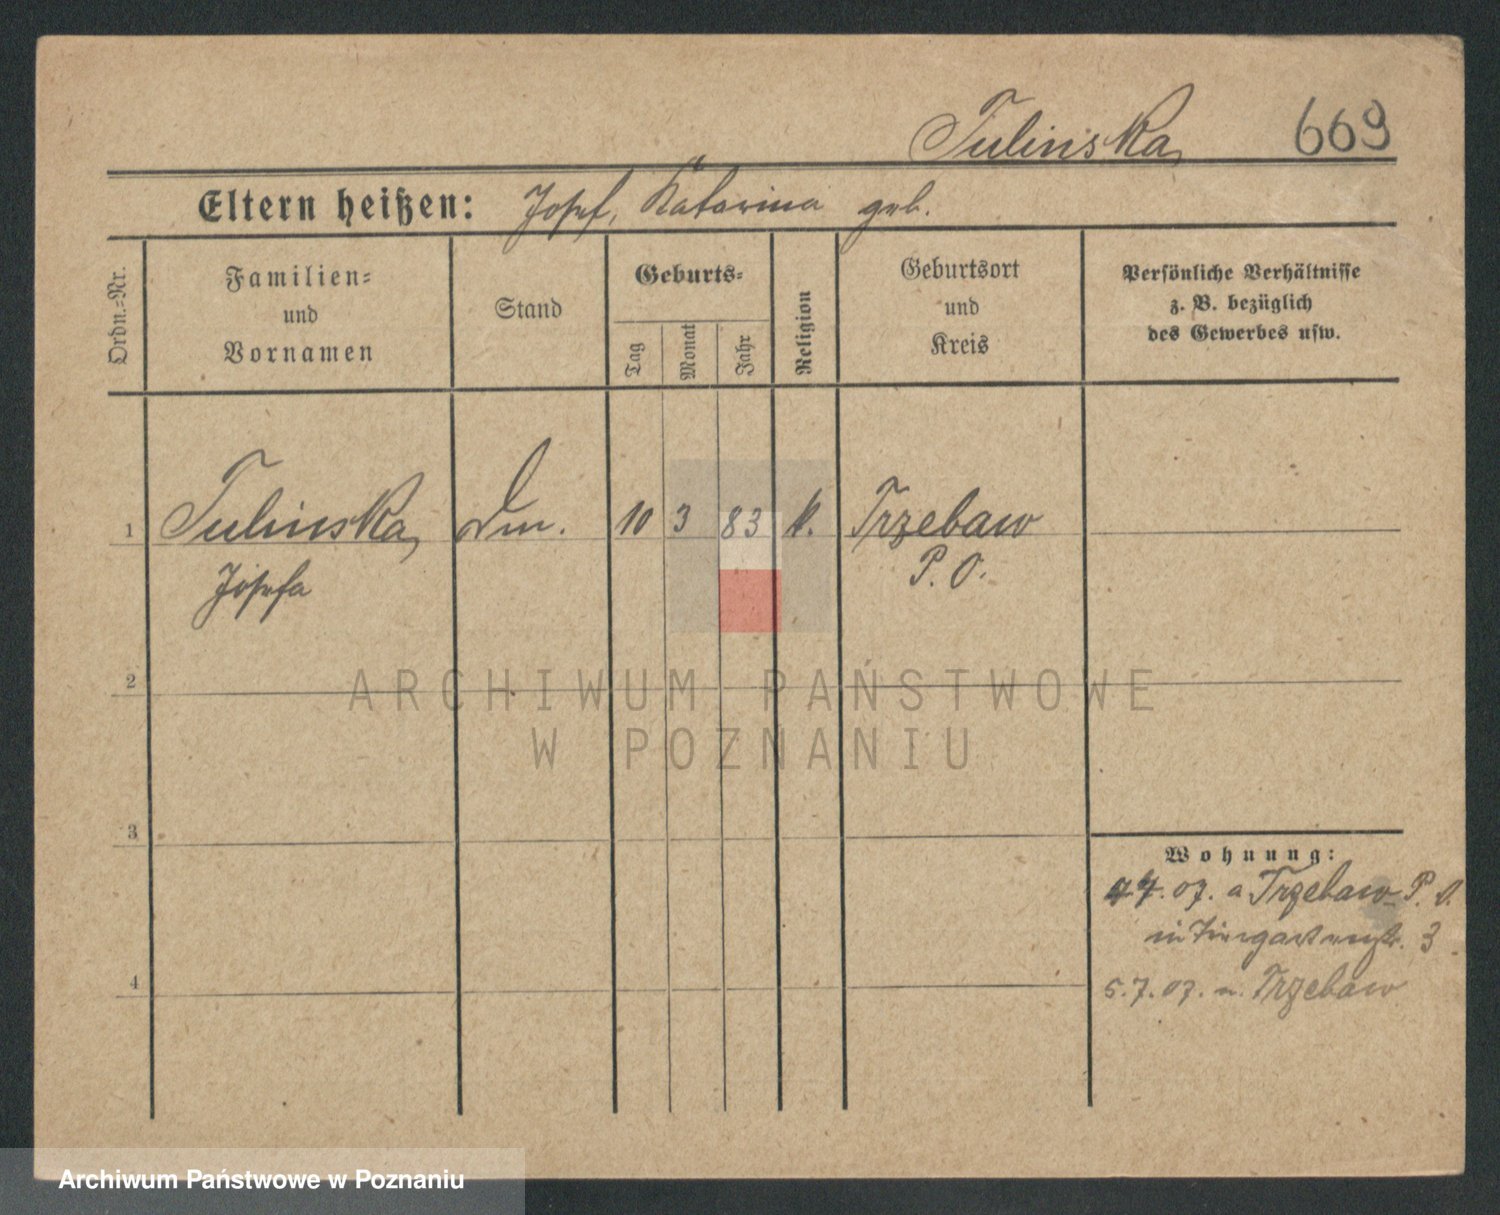 Tulinska 669
Eltern heißen: Josef, Katarina geb.
Ordn.-Nr.
Familien-
und
Vornamen
Stand
Geburts-
Tag
Monat
Jahr
Religion
Geburtsort
und
Kreis
Persönliche Verhältnisse
z. B. bezüglich
des Gewerbes usw.
1 Tulinska, 10 3 83 k. Trzebaw
Josefa P. O.
2
ARCHIWUM PAŃSTWOWE
W POZNANIU
3
Wohnung:
07. a Trzebaw P. O.
in Tiergartenstr. 3
4
5.7.07. n. Trzebaw
Archiwum Państwowe w Poznaniu